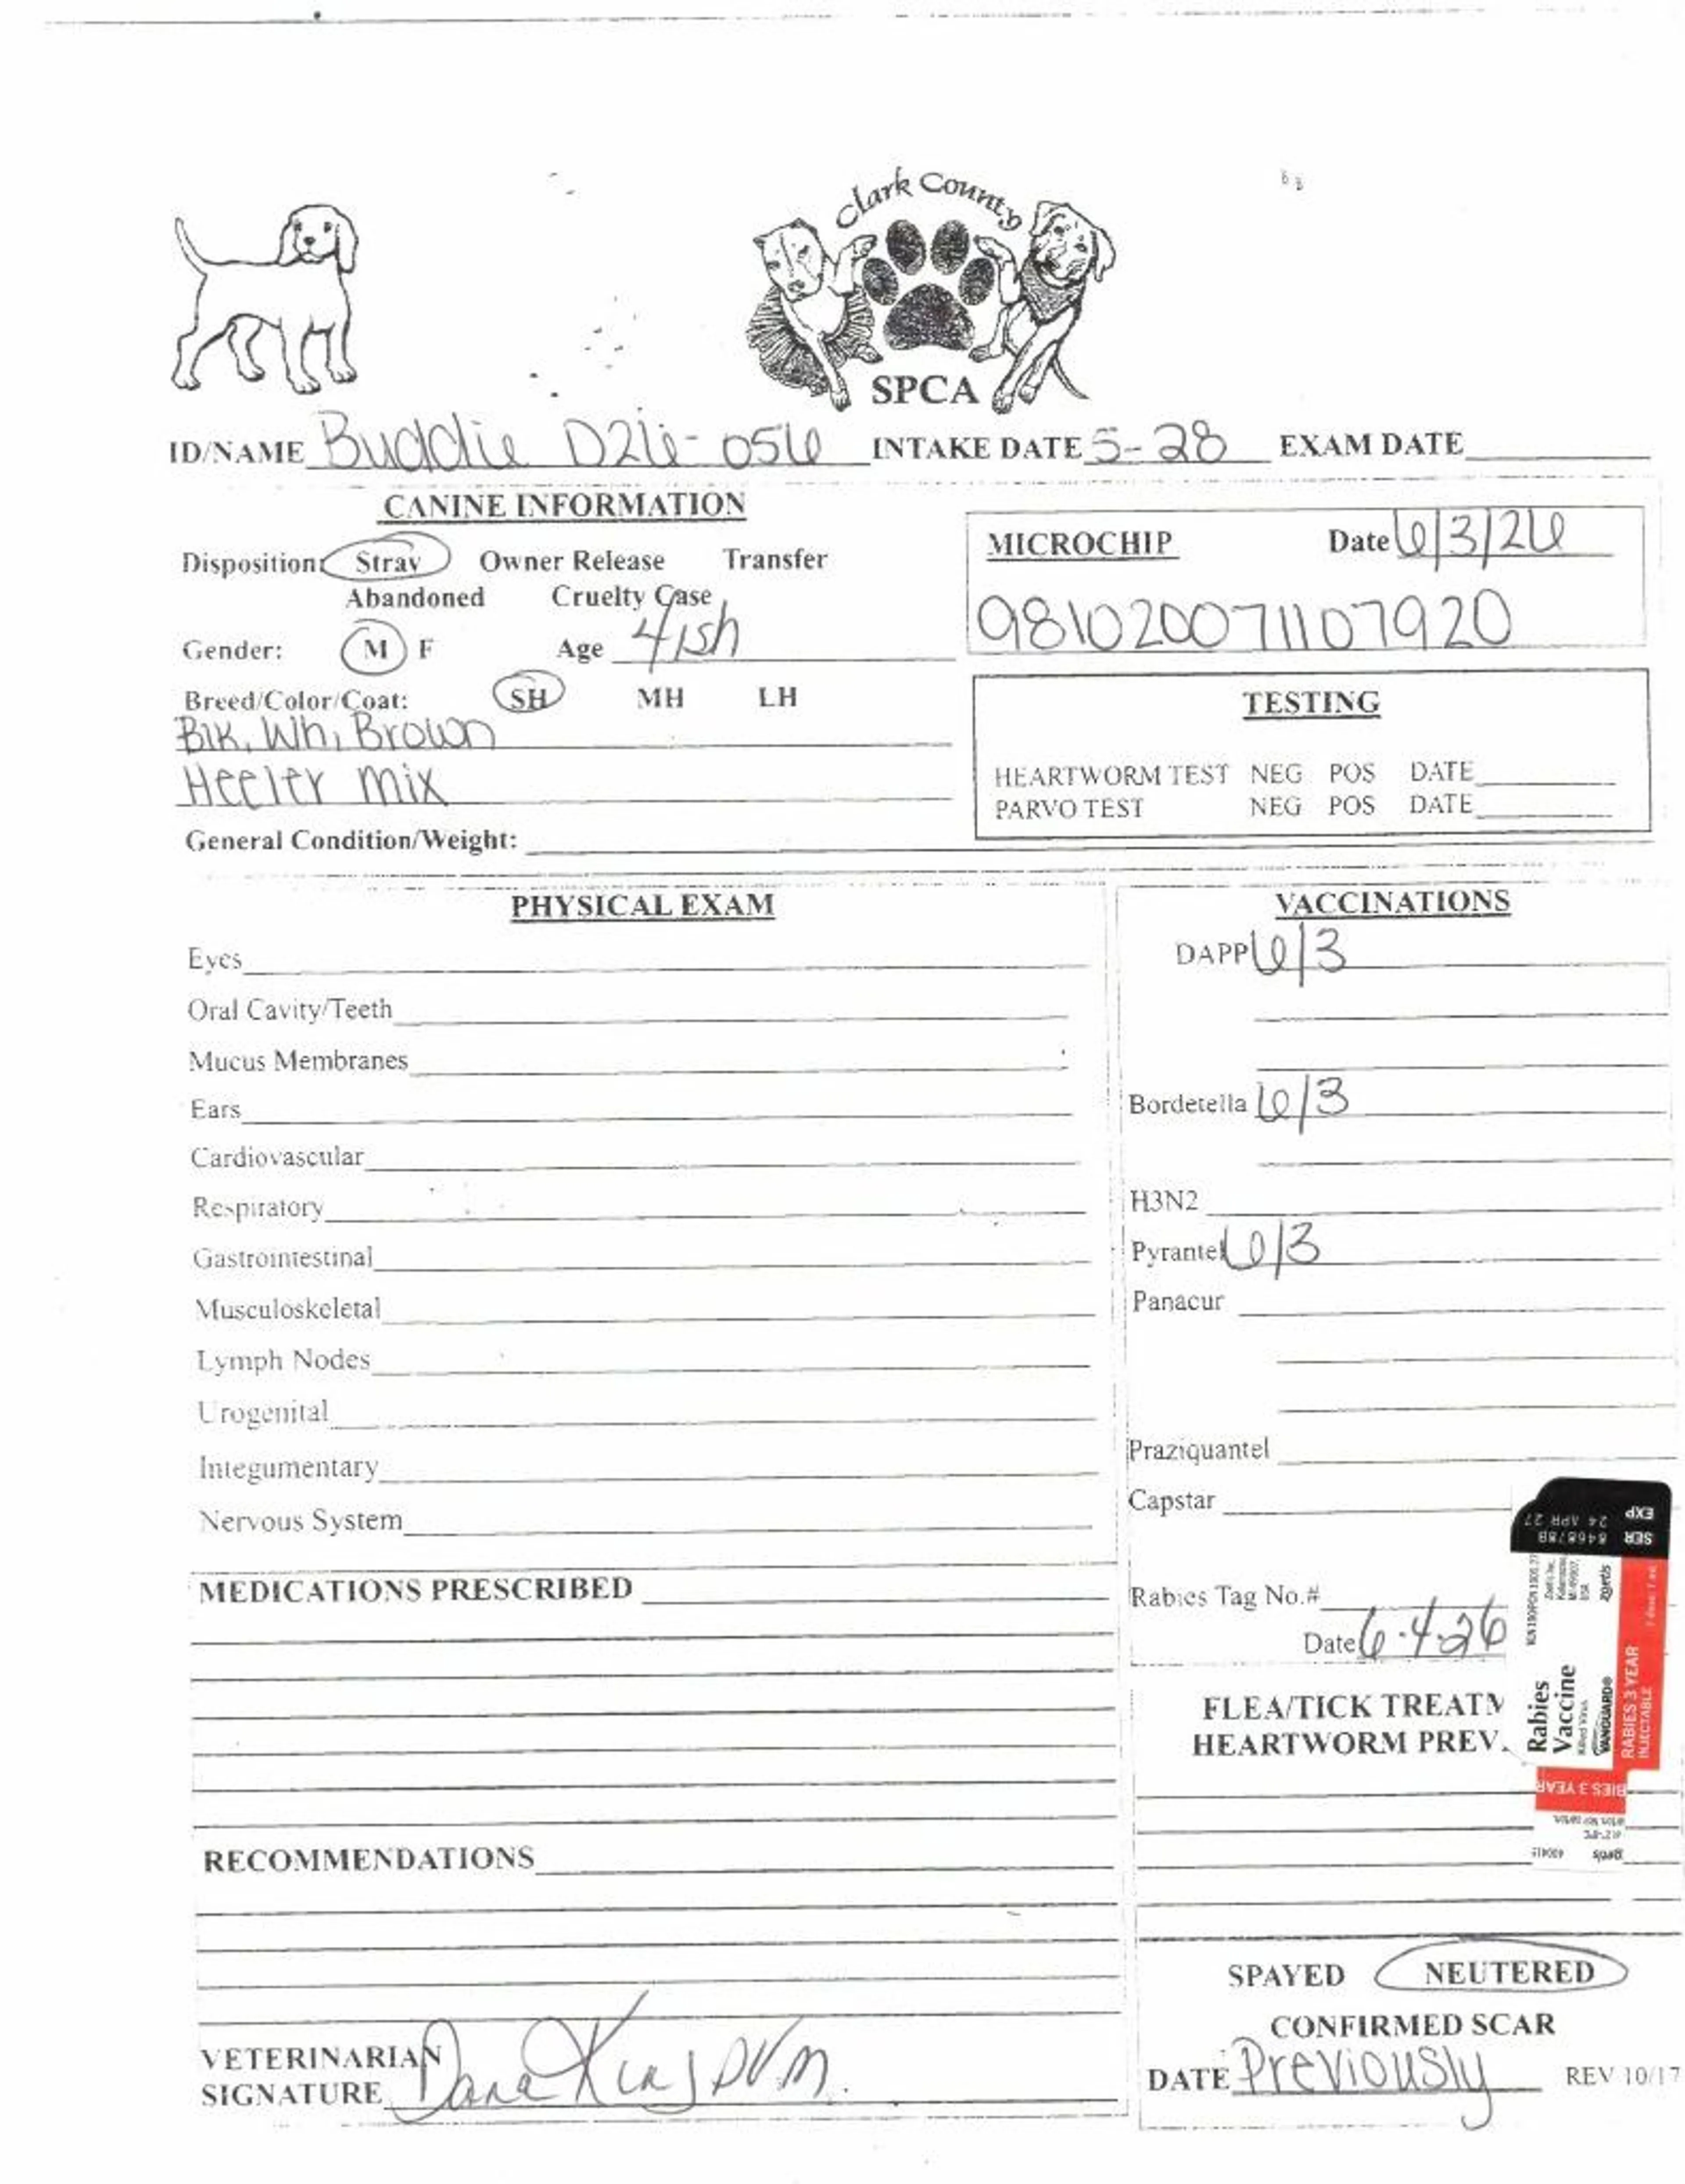 Clark County
SPCA
ID/NAME Buddie D26-056 INTAKE DATE 5-28 EXAM DATE
CANINE INFORMATION
Disposition: Stray Owner Release Transfer
Abandoned Cruelty Case
Gender: M F Age 4ish
Breed/Color/Coat: SH MH LH
Blk, Wh, Brown
Heeler mix
General Condition/Weight:
MICROCHIP Date 6/3/26
981020071107920
TESTING
HEARTWORM TEST NEG POS DATE
PARVO TEST NEG POS DATE
PHYSICAL EXAM
Eyes
Oral Cavity/Teeth
Mucus Membranes
Ears
Cardiovascular
Respiratory
Gastrointestinal
Musculoskeletal
Lymph Nodes
Urogenital
Integumentary
Nervous System
MEDICATIONS PRESCRIBED
RECOMMENDATIONS
VETERINARIAN
SIGNATURE Dana King DVM
VACCINATIONS
DAPP 6/3
Bordetella 6/3
H3N2
Pyrantel 6/3
Panacur
Praziquantel
Capstar
Rabies Tag No.#
Date 6-4-26
EXP 24 APR 27
SER 846878B
Rabies
Vaccine
Killed Virus
VANGUARD®
RABIES 3 YEAR
INJECTABLE
zoetis
BIES 3 YEAR
FLEA/TICK TREATM
HEARTWORM PREV.
SPAYED NEUTERED
CONFIRMED SCAR
DATE Previously REV 10/17